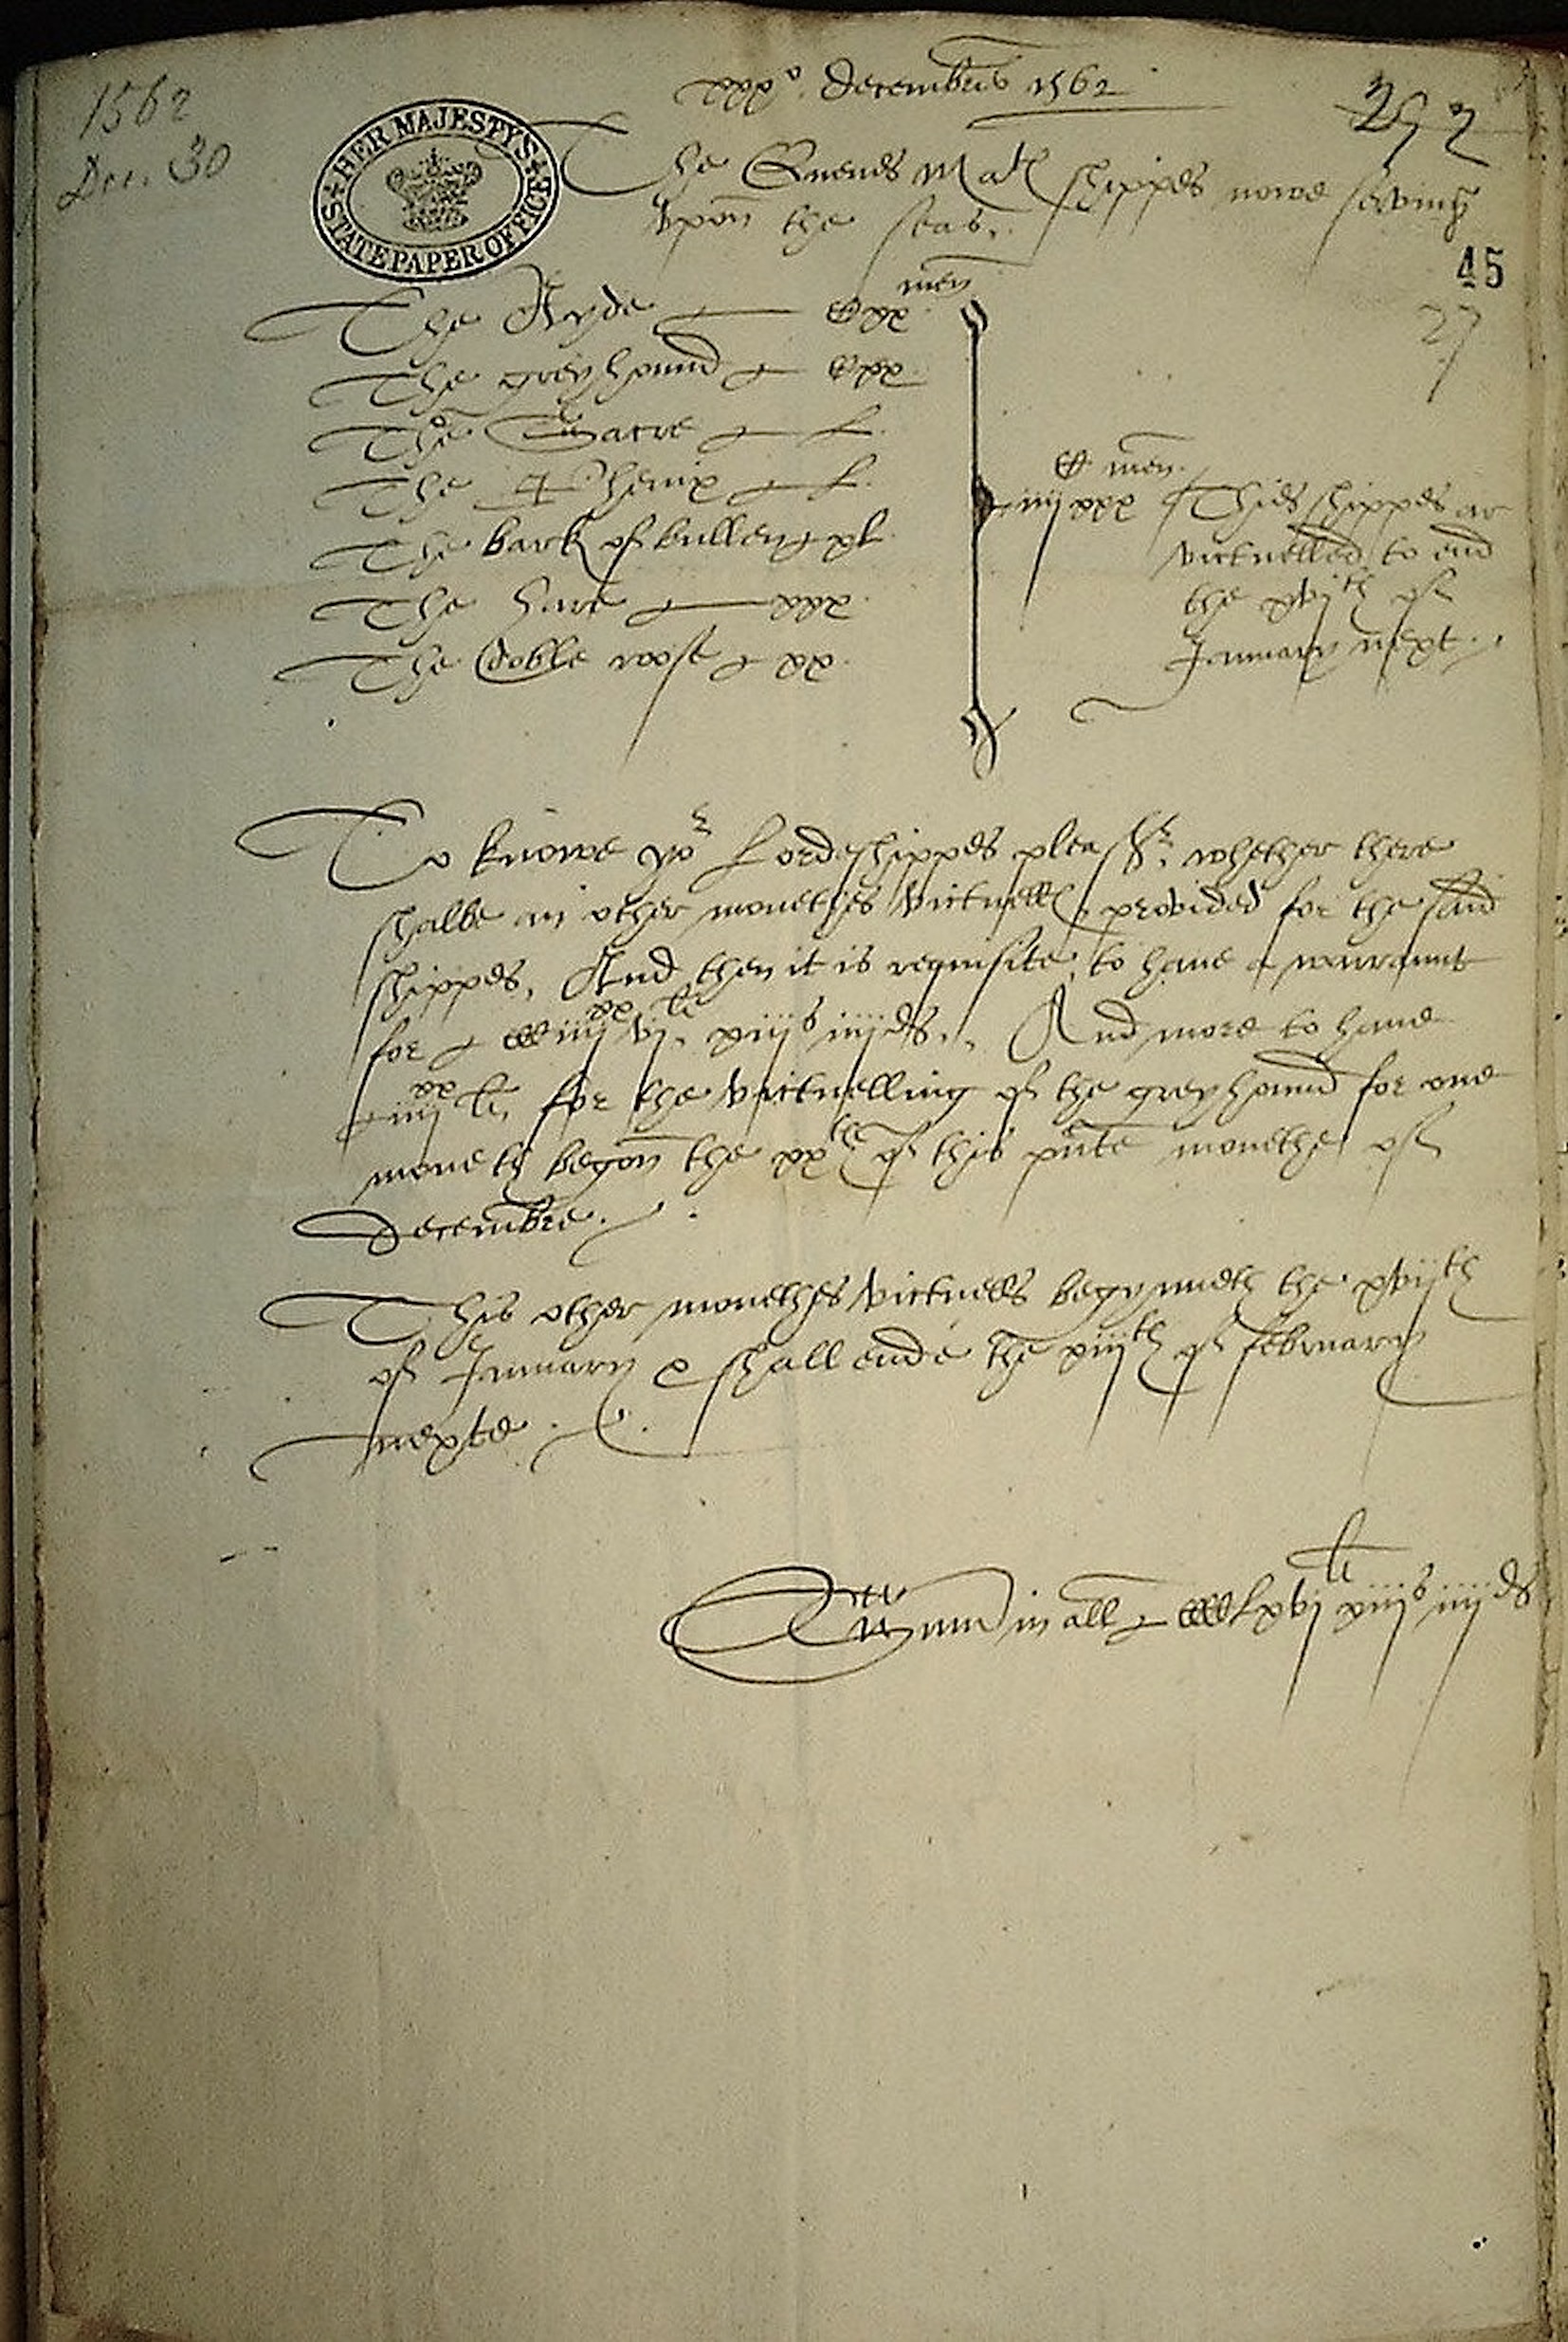 1562
Dec. 30
HER MAJESTY'S STATE PAPER OFFICE
xxx° decembris 1562
252
The Quenes Ma^tes shippes nowe serving
vpon the seas.
45
27
men
The Ayde Cxx
The greyhound Cxx
The Sacre L
The Phenix L
The bark of bullen xl
The hare xxx
The doble roose xx
C men
iiij xxx Thies shippes ar
victuelled to end
the xvj^th of
January next.
To knowe yo^r Lordeshippes pleas^r whether there
shalbe an other monethes victuells provided for the said
shippes, And then it is requisite to haue a warraunt
for CCC iiij^xx vj^li xiij^s iiij^d. And more to haue
iiij^xx li for the victuelling of the greyhound for one
moneth begon the xx^th of this pnte monethe of
decembre.
This other monethes victuells begynneth the xvij^th
of January & shall ende the xiij^th of february
nexte.
Summ in all CCCClxvj^li xiij^s iiij^d